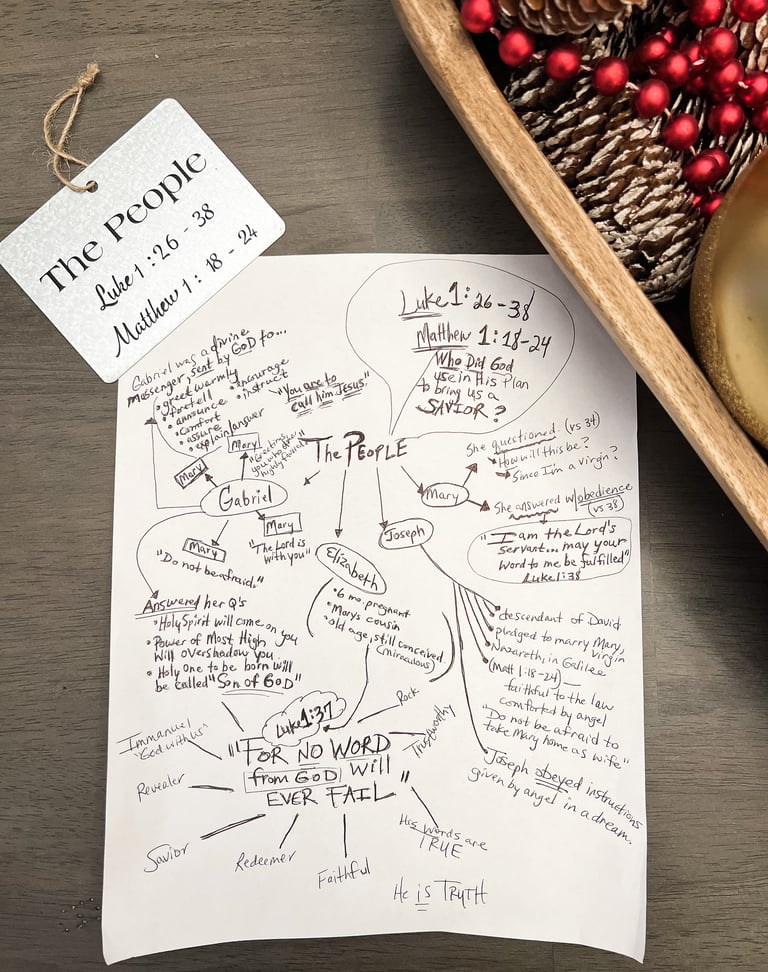 The People
Luke 1:26 - 38
Matthew 1: 18 - 24
Luke 1: 26-38
Matthew 1:18-24
Who Did God
use in His Plan
to bring us a
SAVIOR?
Gabriel was a divine
messenger, sent by GOD to...
• greet warmly
• foretell
• announce
• comfort
• assure
• explain/answer
• encourage
• instruct
"You are to
call him Jesus."
The PEOPLE
Mary
Mary
"Greetings
you who are
highly favored"
Gabriel
Mary
"Do not be afraid."
Mary
"The Lord is
with you"
Answered her Q's
• Holy Spirit will come on you
• Power of Most High
will overshadow you
• Holy One to be born will
be called "Son of GOD"
Elizabeth
• 6 mo. pregnant
• Mary's cousin
• old age, still conceived
(miraculous)
Joseph
Mary
She questioned (vs 34)
How will this be?
Since I'm a virgin?
She answered w/obedience
(vs 38)
"I am the Lord's
servant... may your
word to me be fulfilled"
Luke 1:38
descendant of David
pledged to marry Mary,
virgin
Nazareth, in Galilee
(Matt 1:18-24)
faithful to the law
comforted by angel
"Do not be afraid to
take Mary home as wife"
Joseph obeyed instructions
given by angel in a dream.
Luke 1:37
"FOR NO WORD
from GOD will
EVER FAIL"
Immanuel
"God with us"
Revealer
Savior
Redeemer
Faithful
His words are
TRUE
He is TRUTH
Trustworthy
Rock